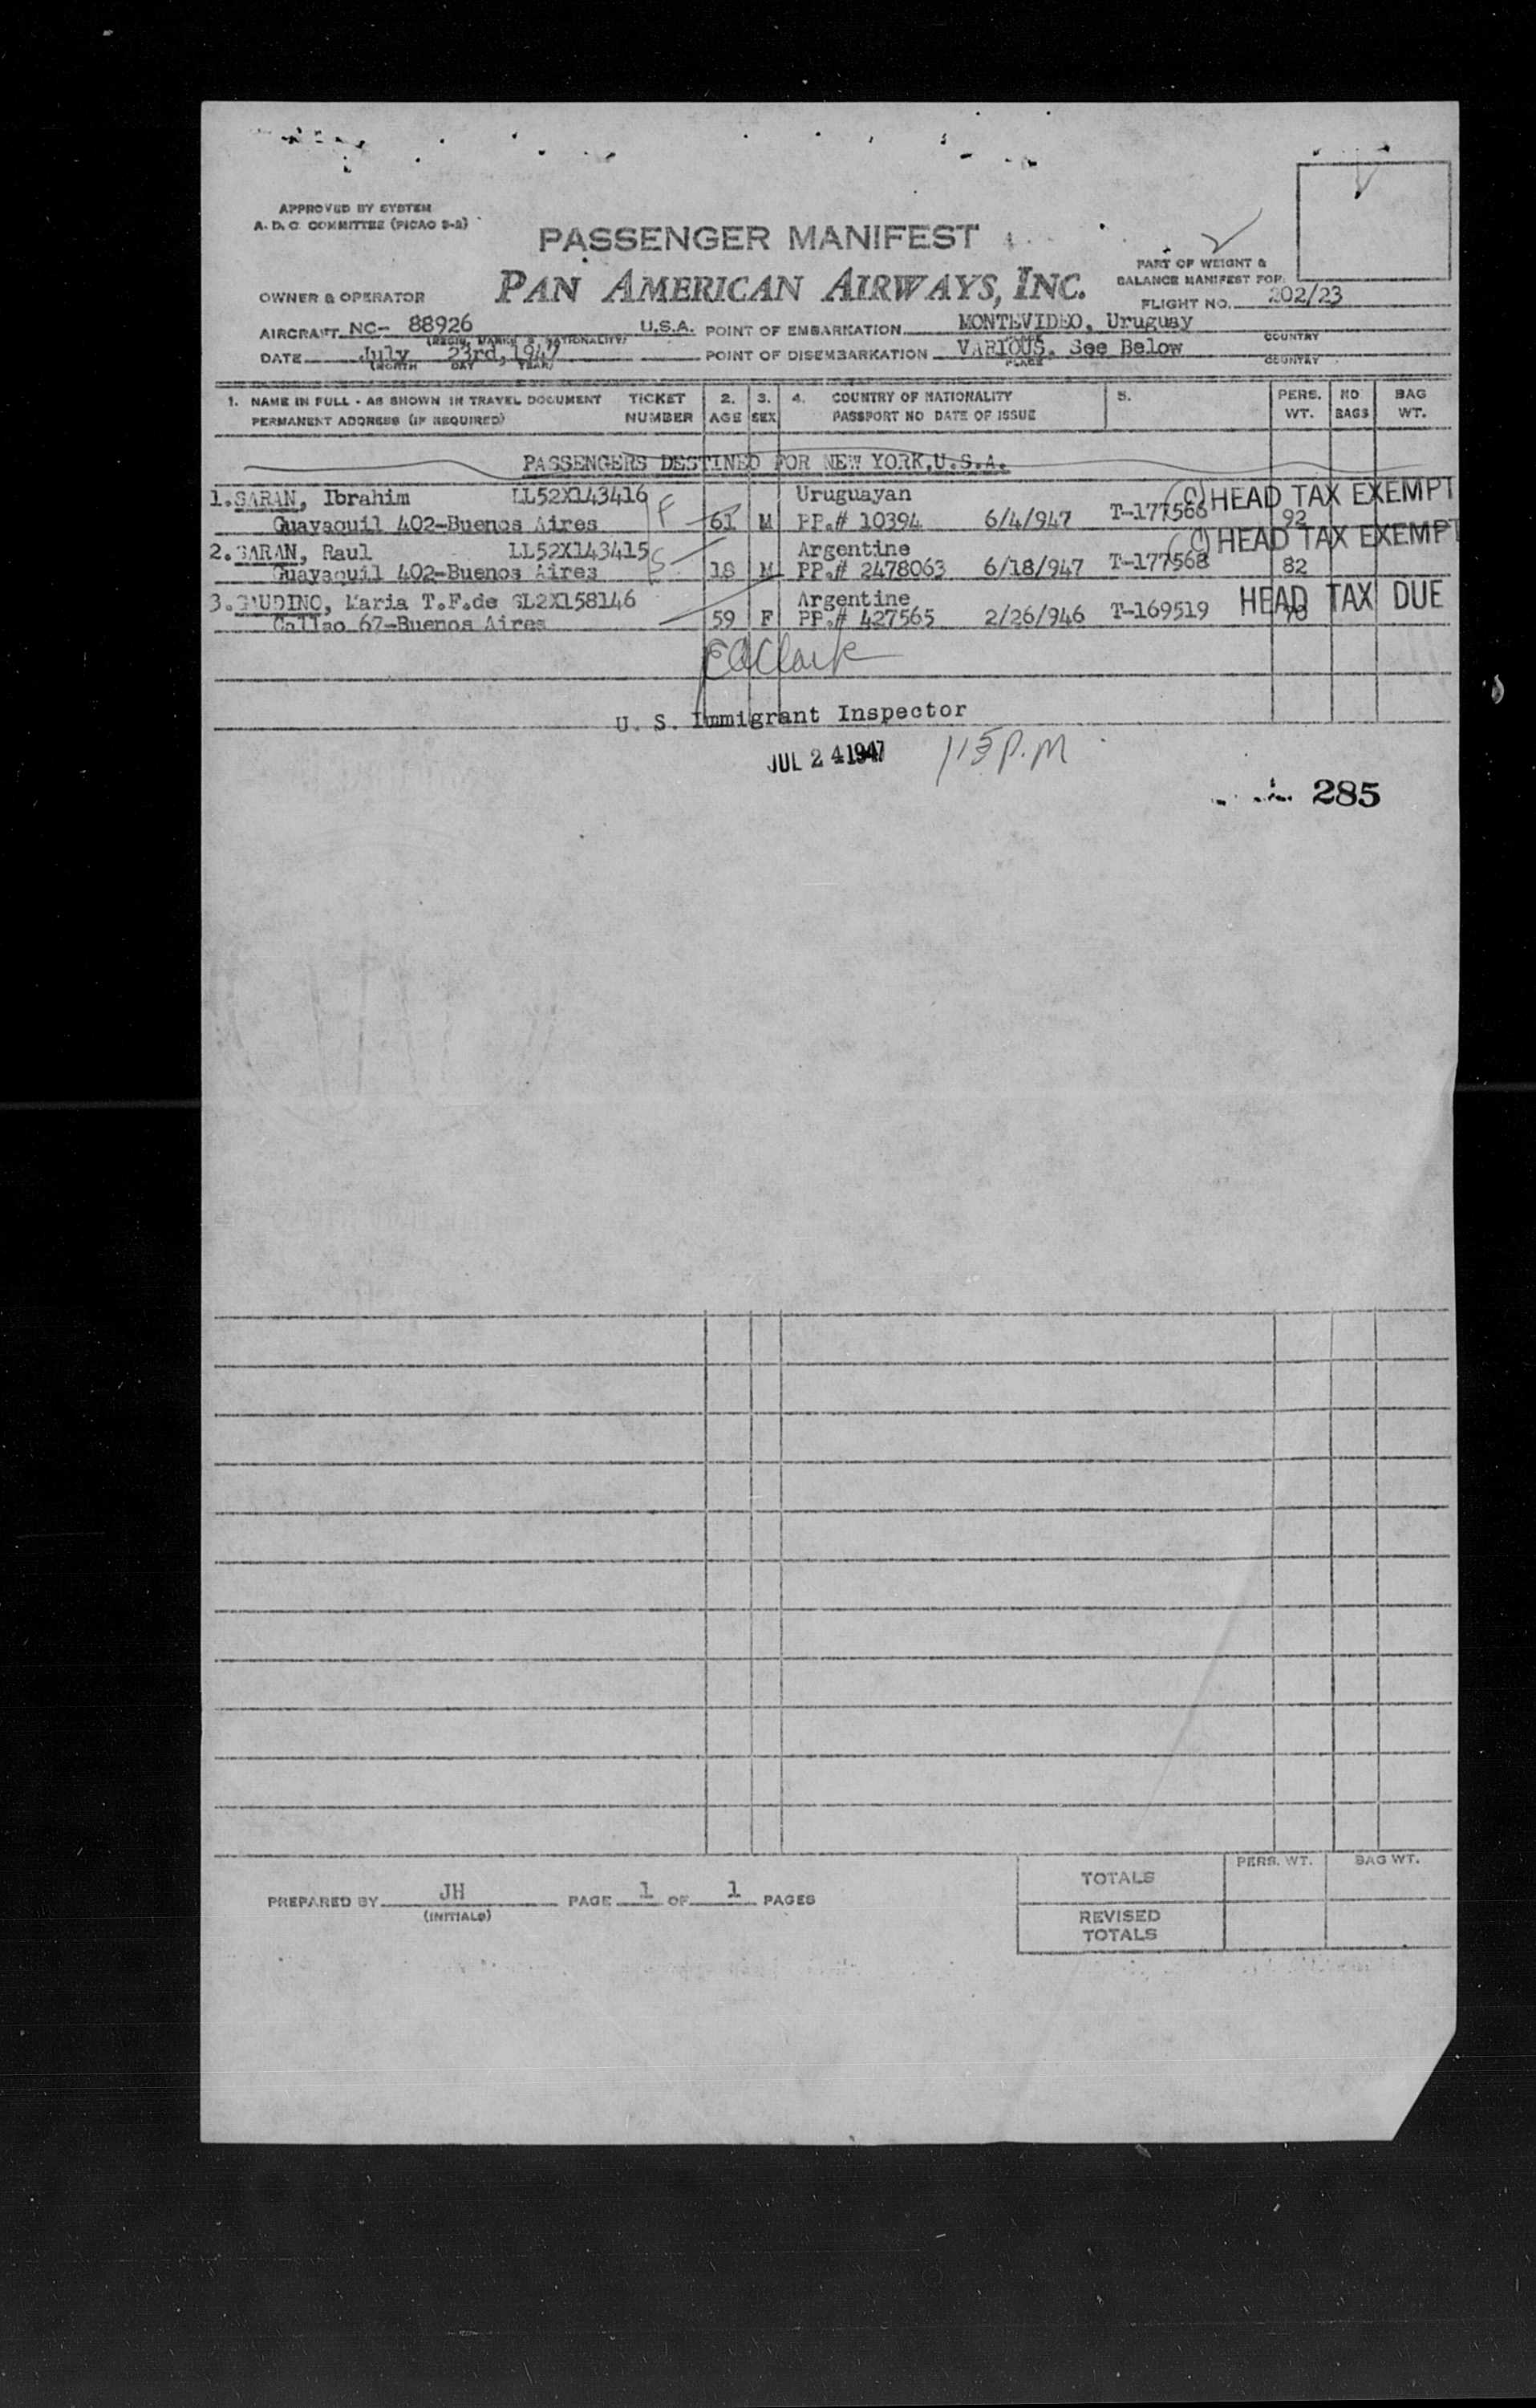 APPROVED BY SYSTEM
A. D. C. COMMITTEE (PICAO S-2)
PASSENGER MANIFEST
PAN AMERICAN AIRWAYS, INC.
PART OF WEIGHT &
BALANCE MANIFEST FOR:
OWNER & OPERATOR
FLIGHT NO. 202/23
AIRCRAFT NC- 88926 U.S.A. POINT OF EMBARKATION MONTEVIDEO, Uruguay
(REGIS. MARKS & NATIONALITY) COUNTRY
DATE July 23rd, 1947 POINT OF DISEMBARKATION VARIOUS. See Below
(MONTH DAY YEAR) PLACE COUNTRY
1. NAME IN FULL - AS SHOWN IN TRAVEL DOCUMENT TICKET 2. 3. 4. COUNTRY OF NATIONALITY 5. PERS. NO BAG
PERMANENT ADDRESS (IF REQUIRED) NUMBER AGE SEX PASSPORT NO DATE OF ISSUE WT. BAGS WT.
PASSENGERS DESTINED FOR NEW YORK,U.S.A.
1.SARAN, Ibrahim LL52X143416 F Uruguayan HEAD TAX EXEMPT
Guayaquil 402-Buenos Aires 61 M PP.# 10394 6/4/947 T-177566 92
2.SARAN, Raul LL52X143415 S Argentine HEAD TAX EXEMPT
Guayaquil 402-Buenos Aires 18 M PP.# 2478063 6/18/947 T-177568 82
3.GAUDINO, Maria T.F.de SL2X158146 Argentine HEAD TAX DUE
Callao 67-Buenos Aires 59 F PP.# 427565 2/26/946 T-169519 70
E A Clark
U. S. Immigrant Inspector
JUL 24 1947 115 P.M
285
PERS. WT. BAG WT.
TOTALS
PREPARED BY JH PAGE 1 OF 1 PAGES
(INITIALS)
REVISED
TOTALS